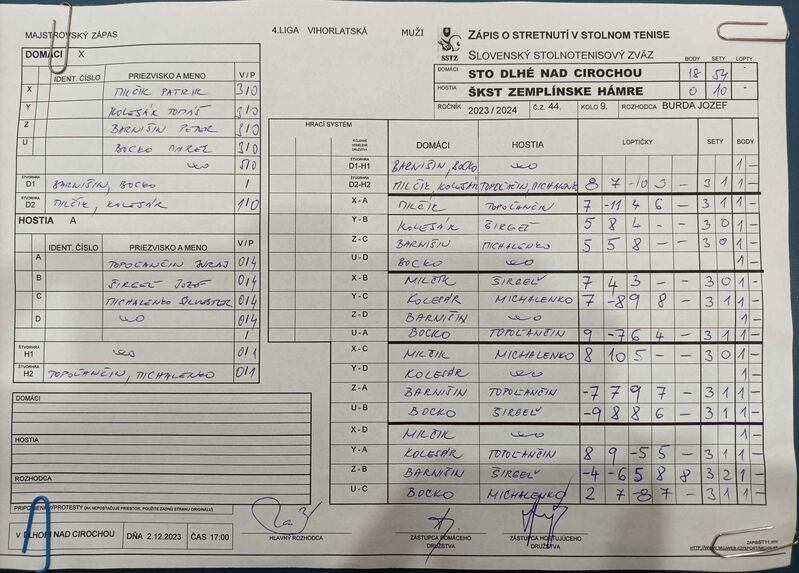 MAJSTROVSKÝ ZÁPAS
4.LIGA VIHORLATSKÁ MUŽI
ZÁPIS O STRETNUTÍ V STOLNOM TENISE
SLOVENSKÝ STOLNOTENISOVÝ ZVÄZ
SSTZ
BODY SETY LOPTY
DOMÁCI STO DLHÉ NAD CIROCHOU 18 54 -
HOSTIA ŠKST ZEMPLÍNSKE HÁMRE 0 10 -
ROČNÍK 2023 / 2024 Č.Z. 44. KOLO 9. ROZHODCA BURDA JOZEF
DOMÁCI X
IDENT. ČÍSLO PRIEZVISKO A MENO V/P
X MILČIK PATRIK 3/0
Y KOLESÁR TOMÁŠ 3/0
Z BARNIŠIN PETER 3/0
U BOCKO 3/0
WO
ŠTVORHRA D1 BARNIŠIN, BOCKO /
ŠTVORHRA D2 MILČIK, KOLESÁR 1/0
HOSTIA A
IDENT. ČÍSLO PRIEZVISKO A MENO V/P
A TOPOĽANČIN JURAJ 0/4
B ŠIRGEĽ JOZEF 0/4
C MICHALENKO SILVESTER 0/4
D WO 0/4
/
ŠTVORHRA H1 WO 0/1
ŠTVORHRA H2 TOPOĽANČIN, MICHALENKO 0/1
DOMÁCI
HOSTIA
ROZHODCA
PRIPOMIENKY/PROTESTY (AK NEPOSTAČUJE PRIESTOR, POUŽITE ZADNÚ STRANU ORIGINÁLU)
V DLHOM NAD CIROCHOU DŇA 2.12.2023 ČAS 17:00
HRACÍ SYSTÉM
DOMÁCI HOSTIA LOPTIČKY SETY BODY
D1-H1 BARNIŠIN, BOCKO WO 1 -
D2-H2 MILČIK, KOLESÁR TOPOĽANČIN, MICHALENKO 8 7 -10 3 - 3 1 1 -
X - A MILČIK TOPOĽANČIN 7 -11 4 6 - 3 1 1 -
Y - B KOLESÁR ŠIRGEĽ 5 8 4 - - 3 0 1 -
Z - C BARNIŠIN MICHALENKO 5 5 8 - - 3 0 1 -
U - D BOCKO WO 1 -
X - B MILČIK ŠIRGEĽ 7 4 3 - - 3 0 1 -
Y - C KOLESÁR MICHALENKO 7 -8 9 8 - 3 1 1 -
Z - D BARNIŠIN WO 1 -
U - A BOCKO TOPOĽANČIN 9 -7 6 4 - 3 1 1 -
X - C MILČIK MICHALENKO 8 10 5 - - 3 0 1 -
Y - D KOLESÁR WO 1 -
Z - A BARNIŠIN TOPOĽANČIN -7 7 9 7 - 3 1 1 -
U - B BOCKO ŠIRGEĽ -9 8 8 6 - 3 1 1 -
X - D MILČIK WO 1 -
Y - A KOLESÁR TOPOĽANČIN 8 9 -5 5 - 3 1 1 -
Z - B BARNIŠIN ŠIRGEĽ -4 -6 5 8 8 3 2 1 -
U - C BOCKO MICHALENKO 2 7 -8 7 - 3 1 1 -
HLAVNÝ ROZHODCA
ZÁSTUPCA DOMÁCEHO DRUŽSTVA
ZÁSTUPCA HOSŤUJÚCEHO DRUŽSTVA